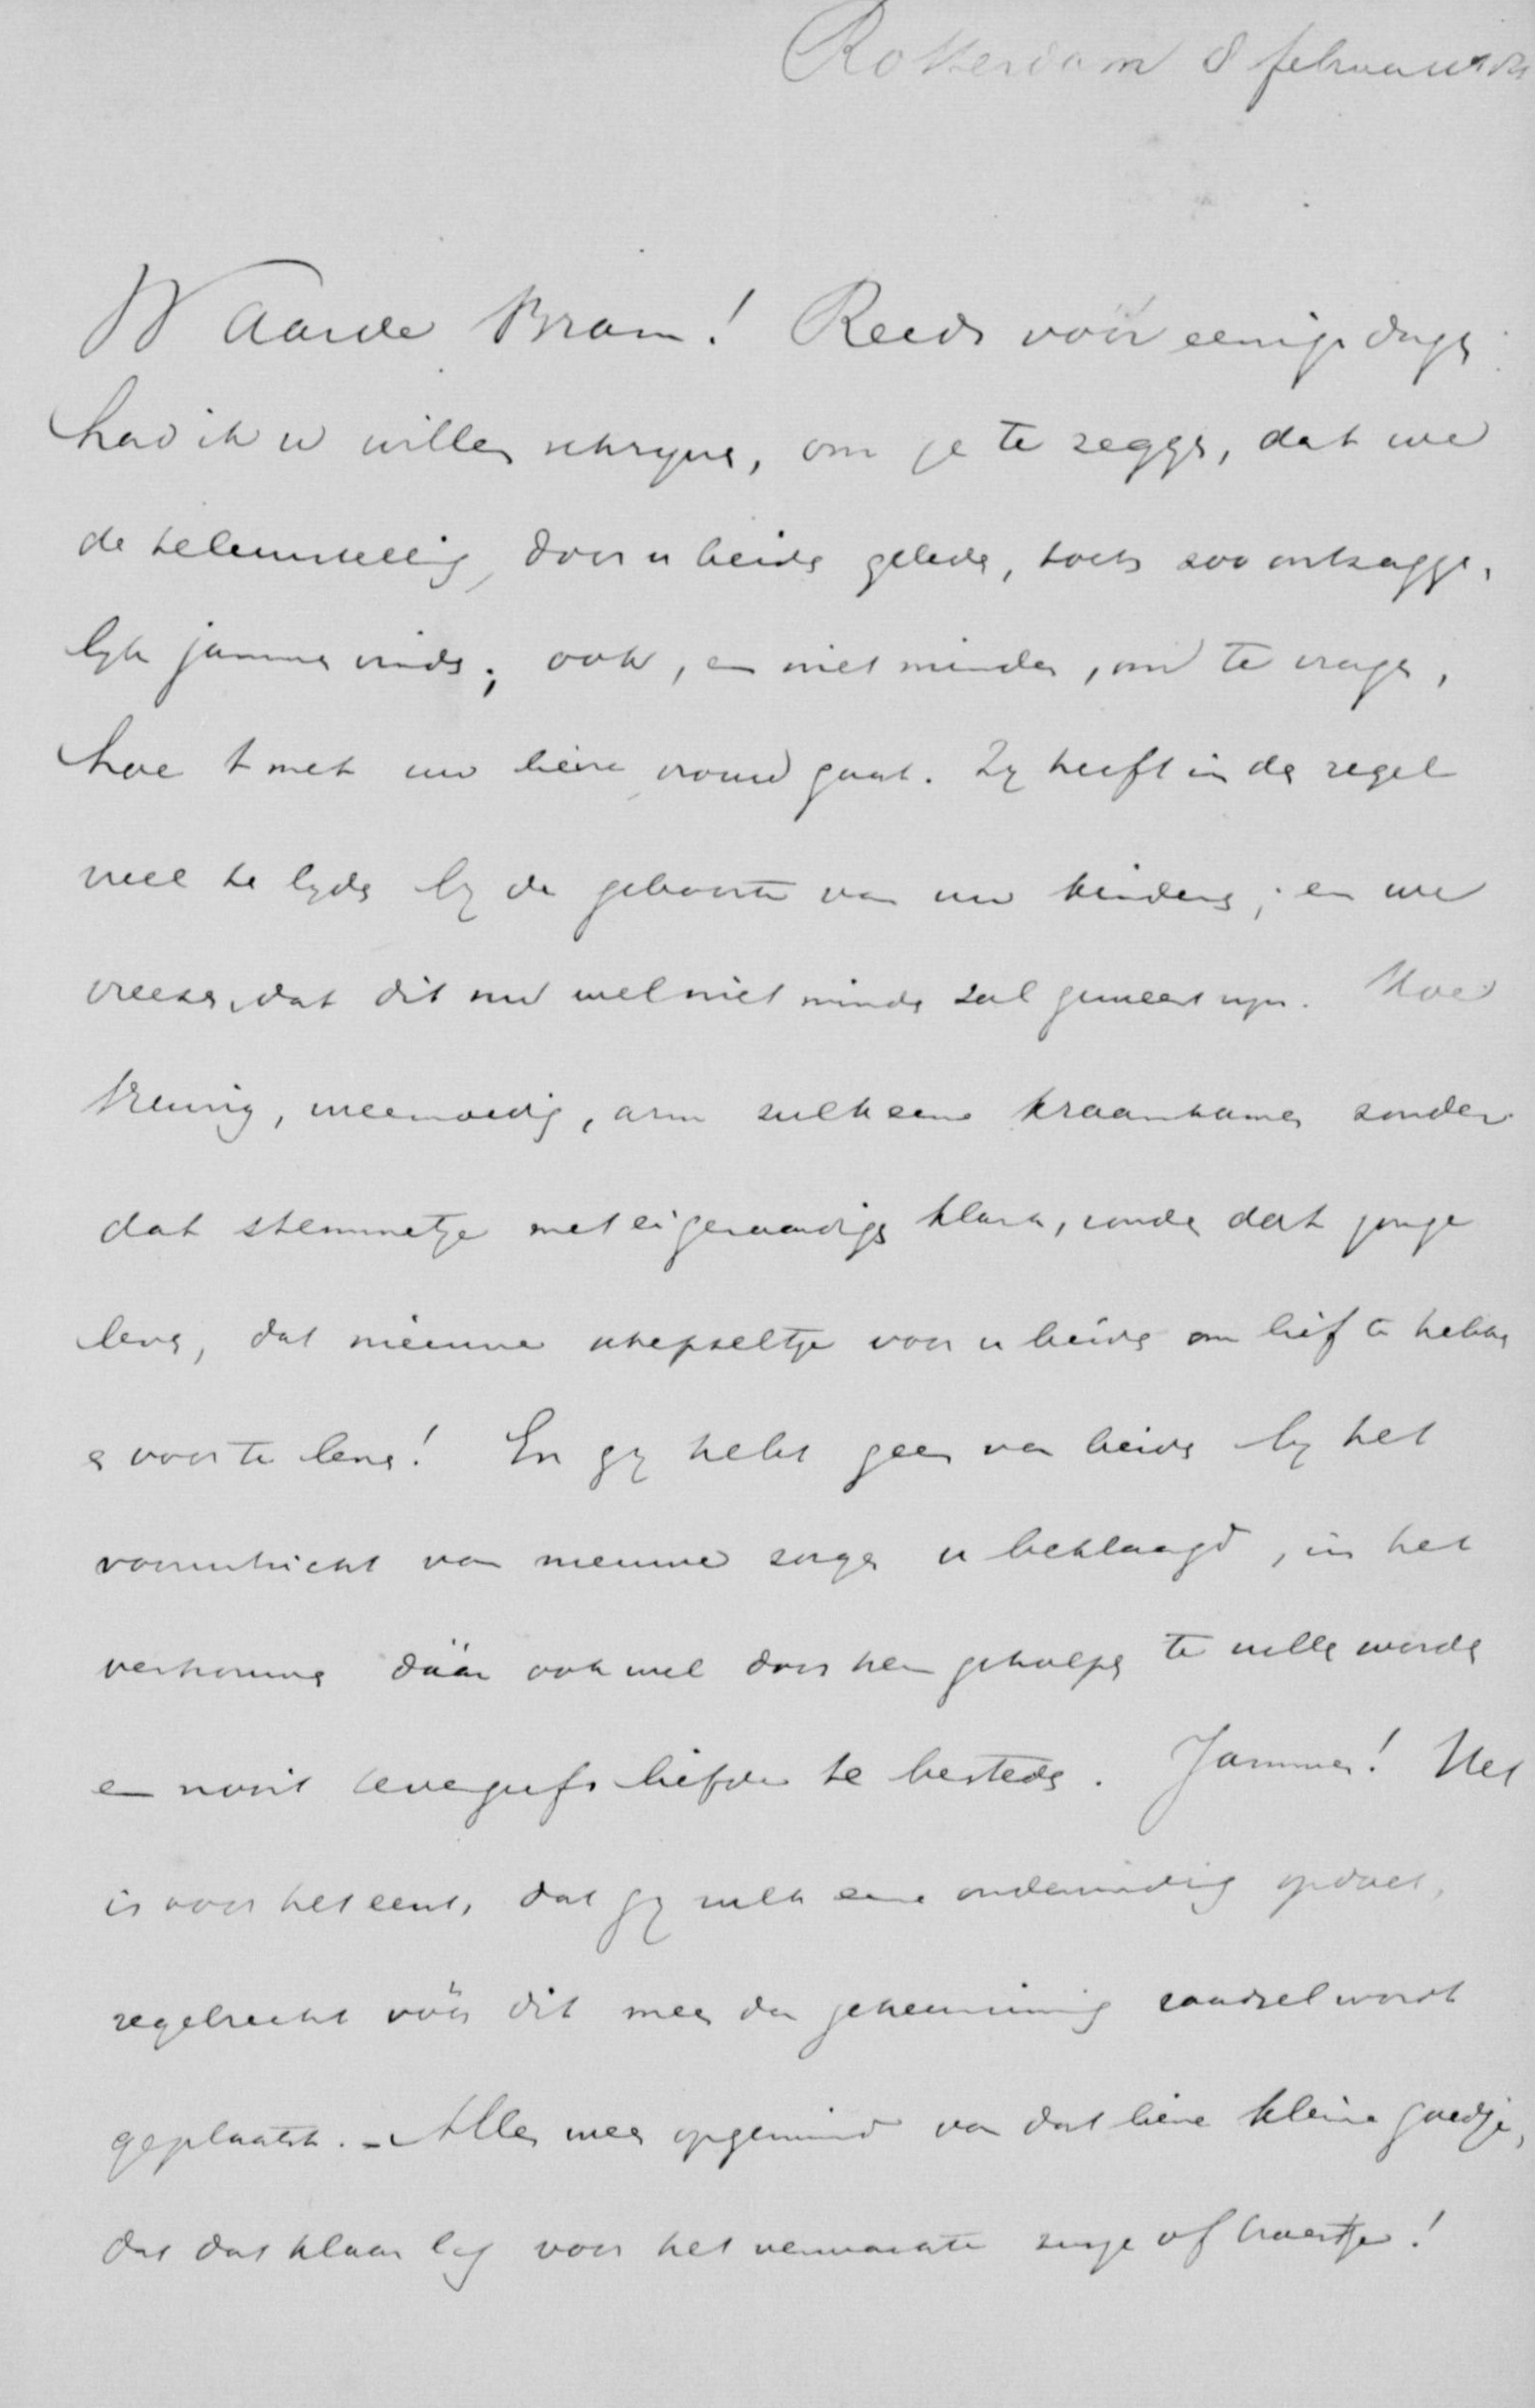 Rotterdam 8 februari
Waarde Bram! Reeds vóór eenige dagen
had ik u willen schryven, om je te zeggen, dat we
de teleurstelling, door u beide geleden, toch zoo ontzagge-
lyk jammer vinden; ook, en niet minder, om te vragen,
hoe 't met uw lieve vrouw gaat. Zy heeft in den regel
veel te lyden by de geboorte van uw kinderen; en we
vreezen, dat dit nu wel niet minder zal geweest zyn. Hoe
treurig, weemoedig, arm zulk eene kraamkamer zonder
dat stemmetje met eigenaardigen klank, zonder dat jonge
leven, dat nieuwe schepseltje voor u beiden om lief te hebben
en voor te leven! En gy hebt geen van beiden by het
vooruitzicht van nieuwe zorgen u beklaagd, in het
vertrouwen dáár ook wel door heen geholpen te zullen worden
en nooit tevergeefs liefde te besteden. Jammer! Het
is voor het eerst, dat gy zulk eene ondervinding opdoet,
regelrecht vóór dit meer dan geheimzinnig raadsel wordt
geplaatst. - Alles weer opgeruimd van dat lieve kleine goedje,
dat daar klaar lag voor het verwachte zusje of broertje!